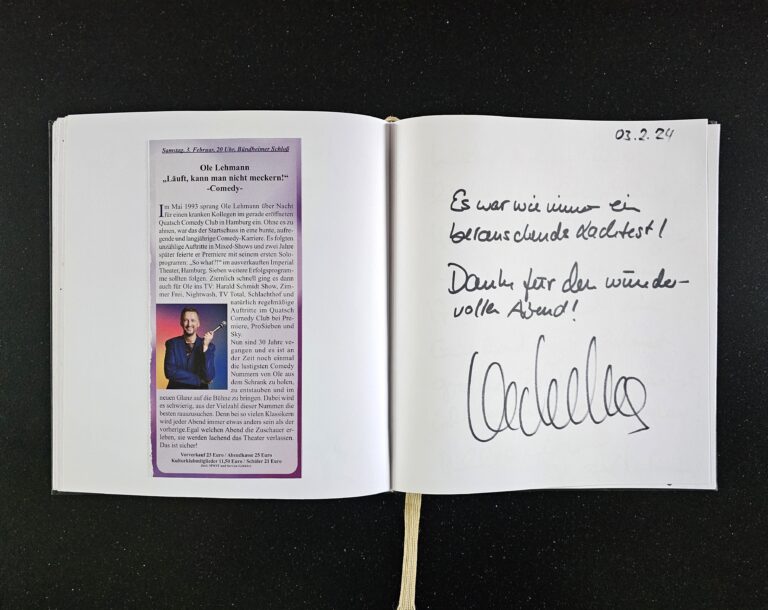 Samstag, 3. Februar, 20 Uhr, Bündheimer Schloß
Ole Lehmann
„Läuft, kann man nicht meckern!“
-Comedy-
Im Mai 1993 sprang Ole Lehmann über Nacht
für einen kranken Kollegen im gerade eröffneten
Quatsch Comedy Club in Hamburg ein. Ohne es zu
ahnen, war das der Startschuss in eine bunte, aufre-
gende und langjährige Comedy-Karriere. Es folgten
unzählige Auftritte in Mixed-Shows und zwei Jahre
später feierte er Premiere mit seinem ersten Solo-
programm: „So what?!“ im ausverkauften Imperial
Theater, Hamburg. Sieben weitere Erfolgsprogram-
me sollten folgen. Ziemlich schnell ging es dann
auch für Ole ins TV: Harald Schmidt Show, Zim-
mer Frei, Nightwash, TV Total, Schlachthof und
natürlich regelmäßige
Auftritte im Quatsch
Comedy Club bei Pre-
miere, ProSieben und
Sky.
Nun sind 30 Jahre ve-
gangen und es ist an
der Zeit noch einmal
die lustigsten Comedy
Nummern von Ole aus
dem Schrank zu holen,
zu entstauben und im
neuen Glanz auf die Bühne zu bringen. Dabei wird
es schwierig, aus der Vielzahl dieser Nummen die
besten rauszusuchen. Denn bei so vielen Klassikern
wird jeder Abend immer etwas anders sein als der
vorherige.Egal welchen Abend die Zuschauer er-
leben, sie werden lachend das Theater verlassen.
Das ist sicher!
Vorverkauf 23 Euro / Abendkasse 25 Euro
Kulturklubmitglieder 11,50 Euro / Schüler 21 Euro
03.2.24
Es war wie immer ein
berauschendes Lachfest!
Danke für den wunder-
vollen Abend!